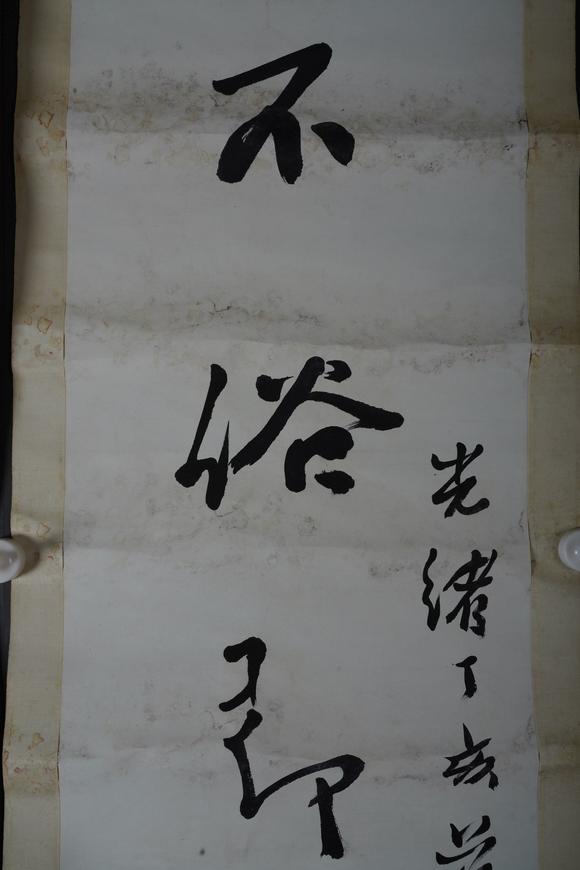 光緒丁亥
不俗即